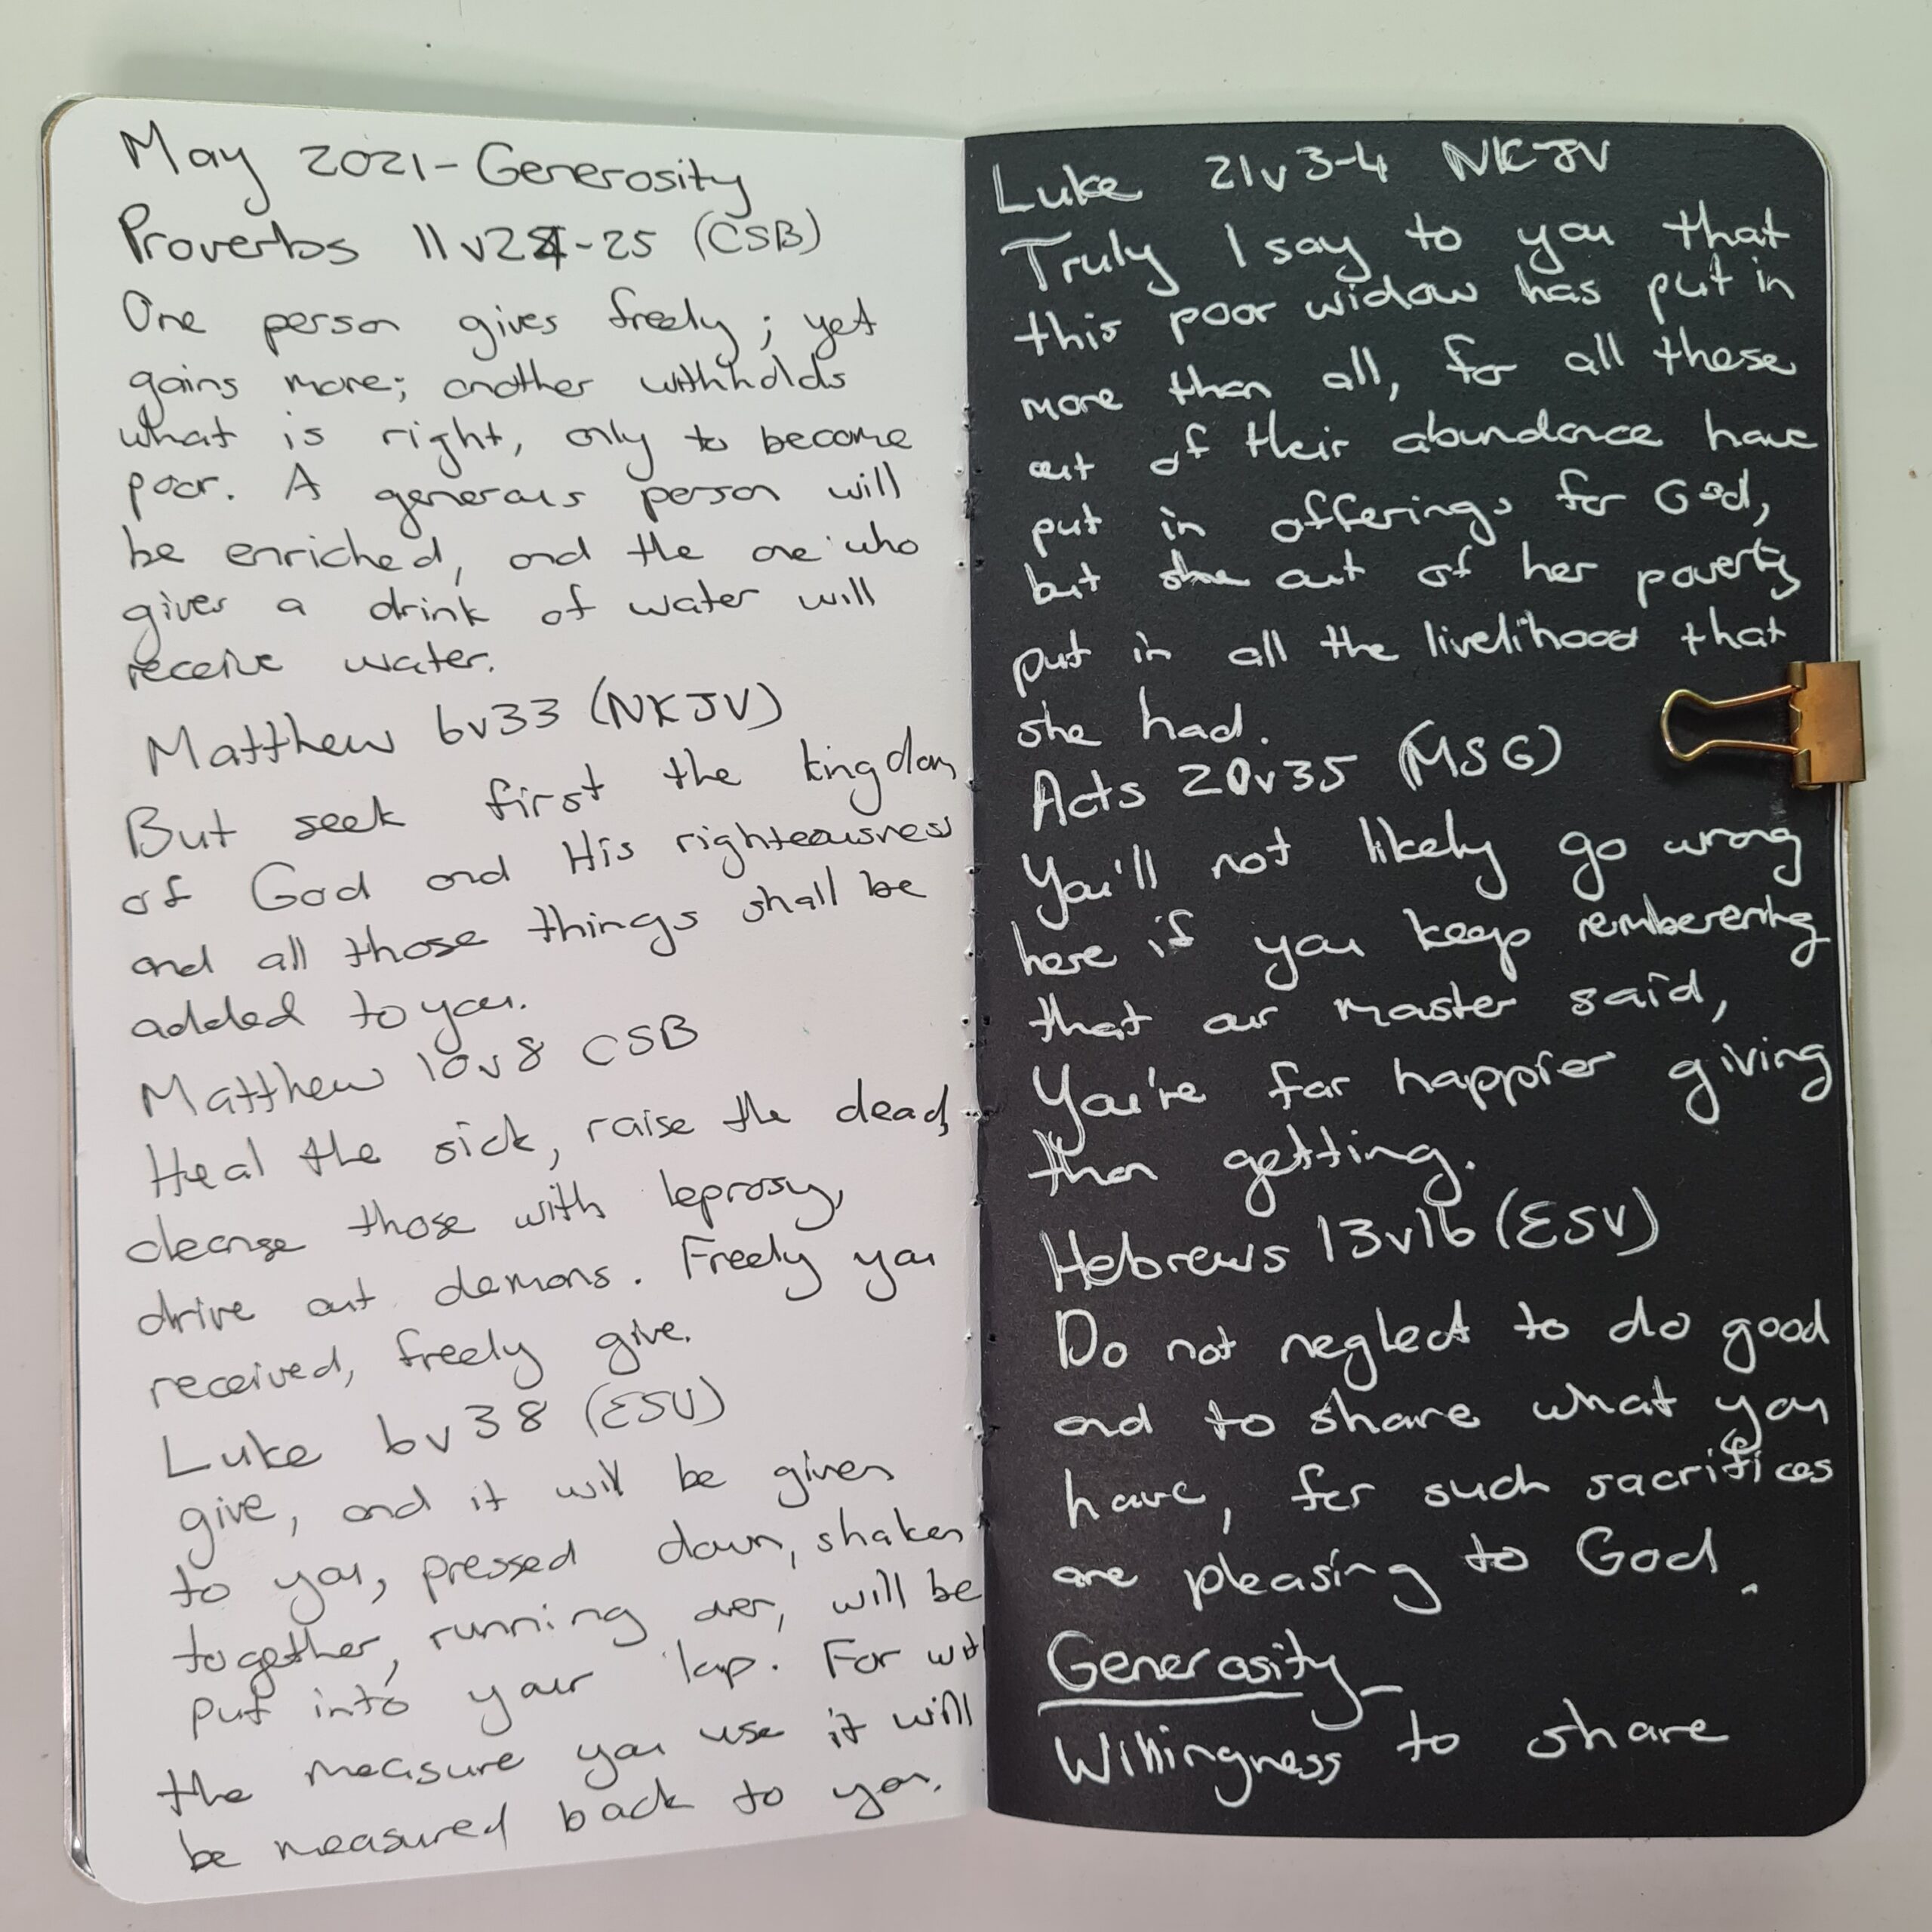 May 2021 - Generosity
Proverbs 11v24-25 (CSB)
One person gives freely; yet
gains more; another withholds
what is right, only to become
poor. A generous person will
be enriched, and the one who
gives a drink of water will
receive water.
Matthew 6v33 (NKJV)
But seek first the kingdom
of God and His righteousness
and all those things shall be
added to you.
Matthew 10v8 CSB
Heal the sick, raise the dead,
cleanse those with leprosy,
drive out demons. Freely you
received, freely give.
Luke 6v38 (ESV)
give, and it will be given
to you, pressed down, shaken
together, running over, will be
put into your lap. For with
the measure you use it will
be measured back to you.
Luke 21v3-4 NKJV
Truly I say to you that
this poor widow has put in
more than all, for all these
out of their abundance have
put in offerings for God,
but she out of her poverty
put in all the livelihood that
she had.
Acts 20v35 (MSG)
You'll not likely go wrong
here if you keep remberering
that our master said,
You're far happier giving
than getting.
Hebrews 13v16 (ESV)
Do not neglect to do good
and to share what you
have, for such sacrifices
are pleasing to God.
Generosity -
Willingness to share